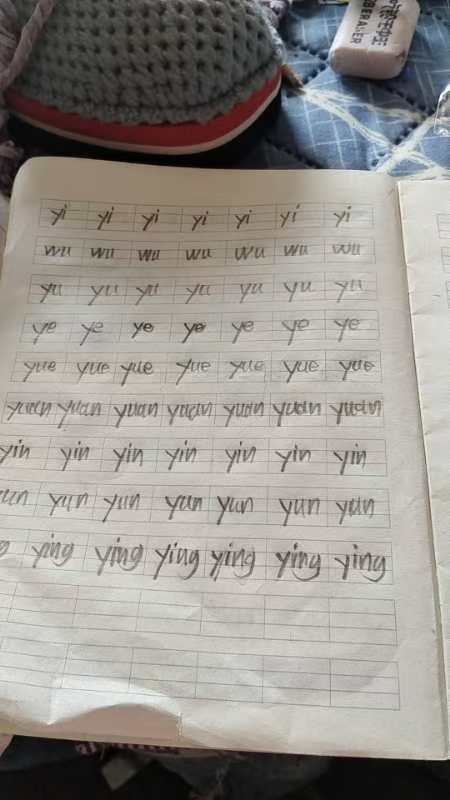 BERASER
yi yi yi yi yi yi yi
wu wu wu wu wu wu wu
yu yu yu yu yu yu yu
ye ye ye ye ye ye ye
yue yue yue yue yue yue yue
yuan yuan yuan yuan yuan yuan yuan
yin yin yin yin yin yin yin
yun yun yun yun yun yun
ying ying ying ying ying ying